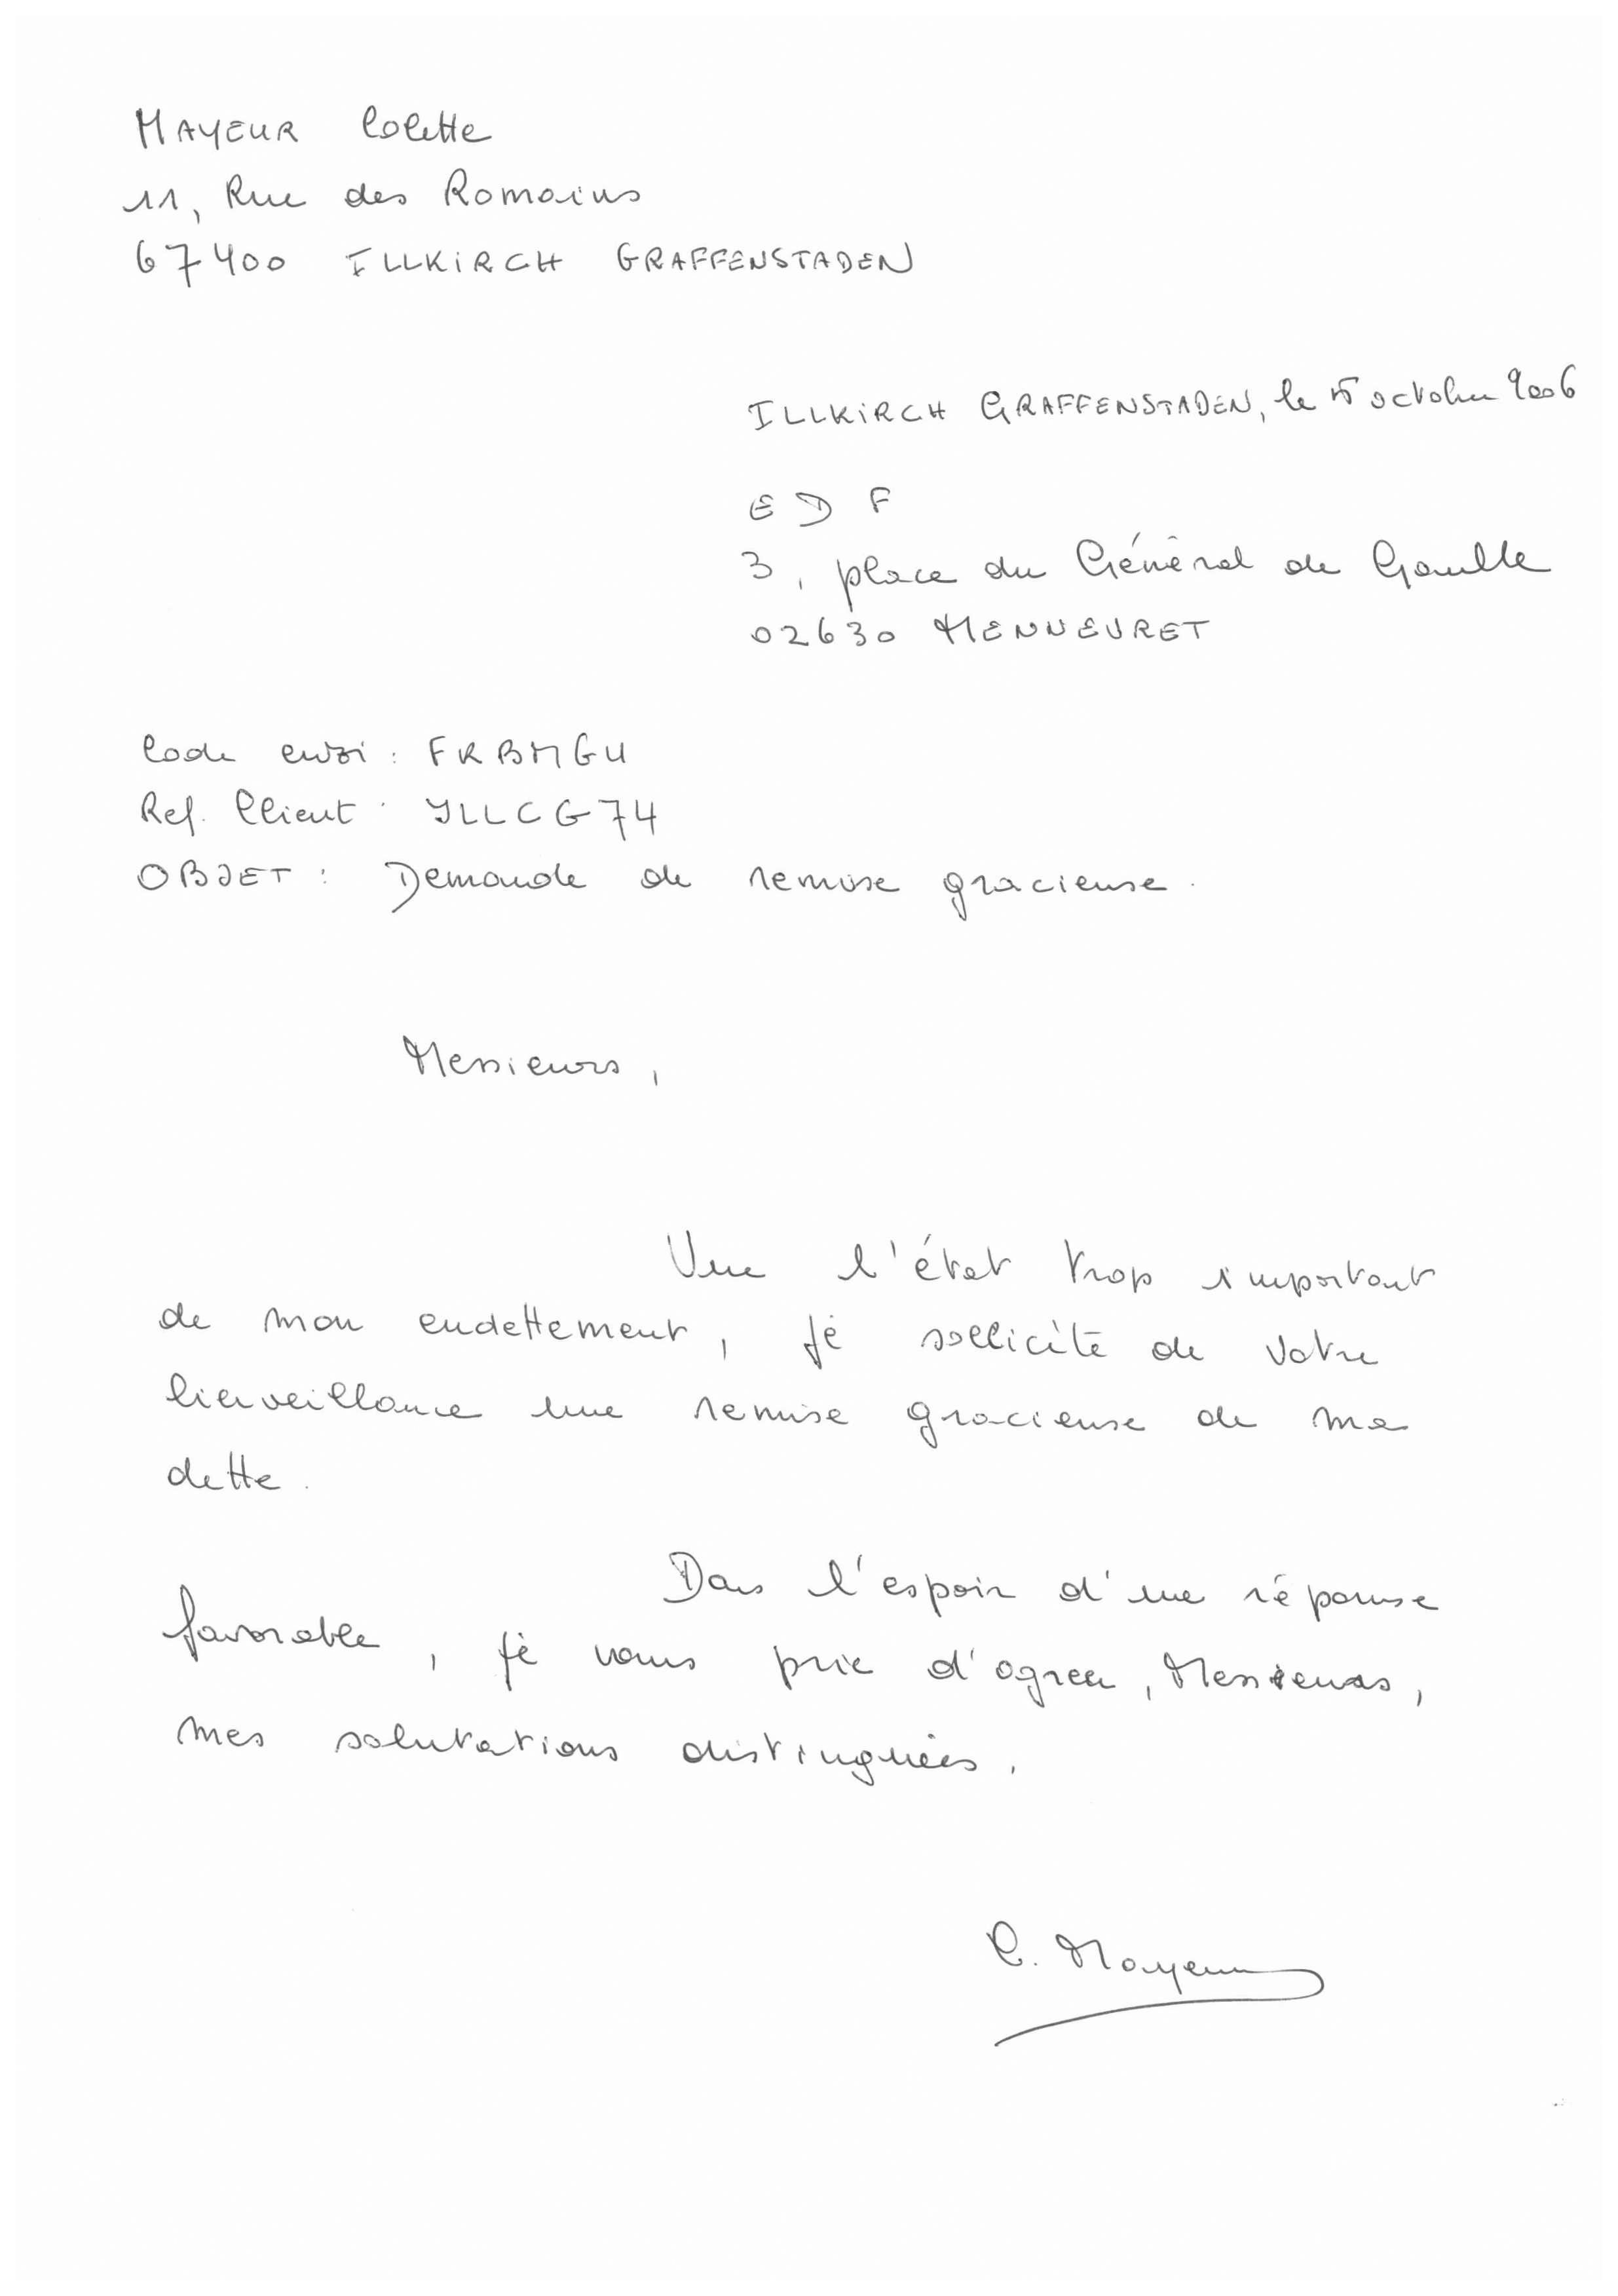 MAYEUR Colette
11, Rue des Romains
67400 ILLKIRCH GRAFFENSTADEN
ILLKIRCH GRAFFENSTADEN, le octobre 2006
EDF
3, place du Général de Gaulle
02630 MENNEVRET
Code envoi : FKBMGU
Ref. Client : YLLCG74
OBJET : Demande de remise gracieuse.
Messieurs,
Vue l'état trop important
de mon endettement, je sollicite de votre
bienveillance une remise gracieuse de ma
dette.
Dans l'espoir d'une réponse
favorable, je vous prie d'agréer, Messieurs,
mes salutations distinguées.
C. Mayeur